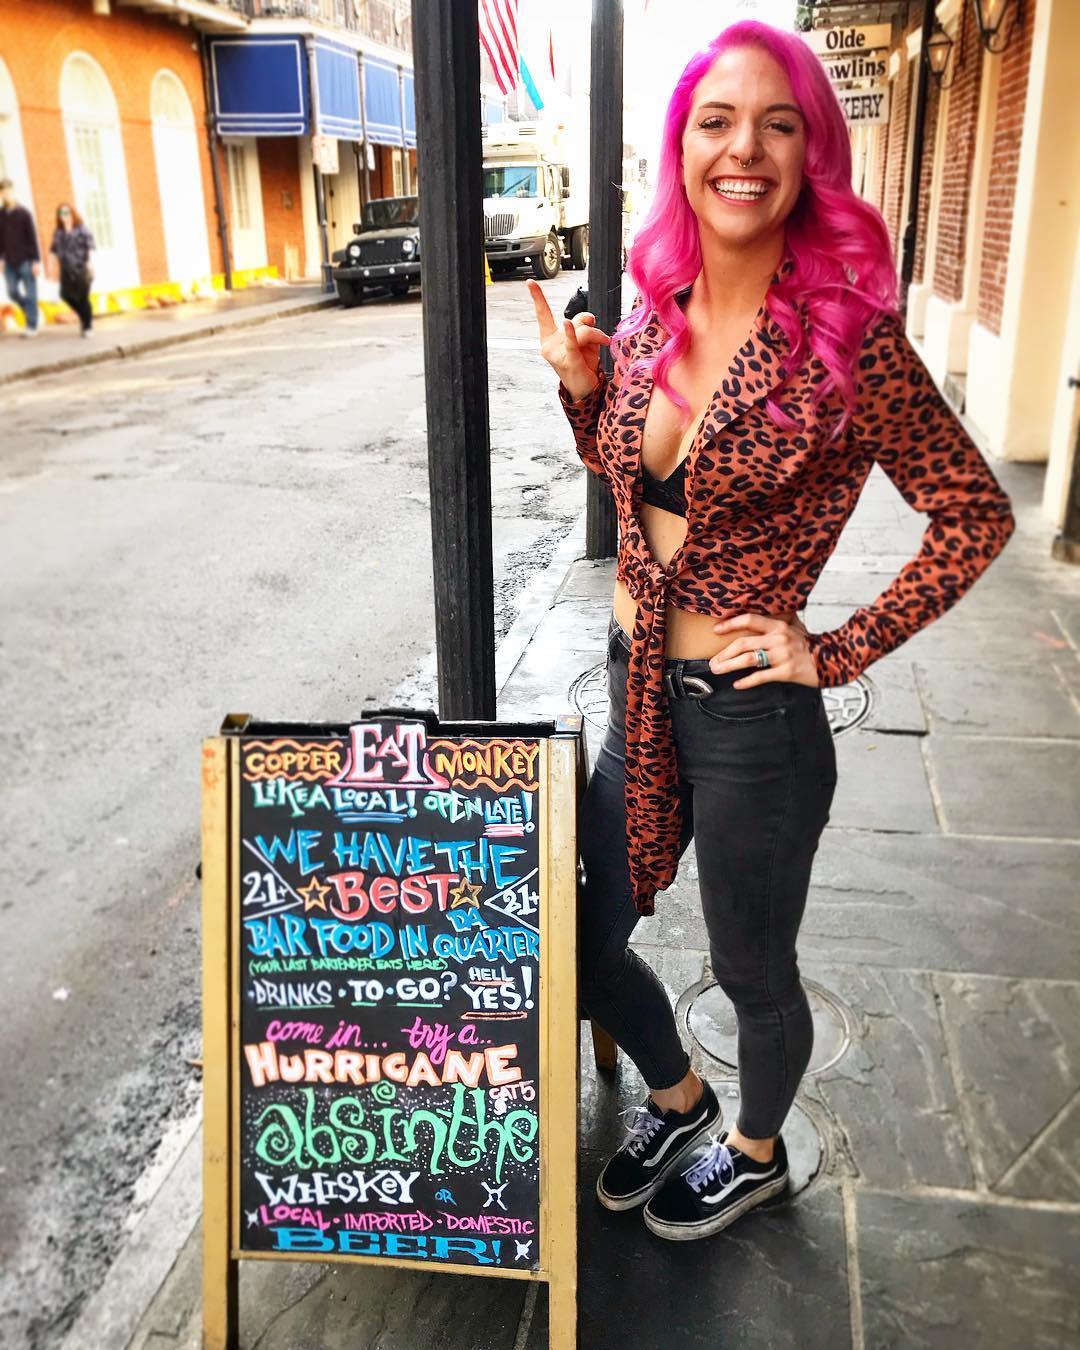 Olde
KERY
COPPER EAT MONKEY
LIKE A LOCAL! OPEN LATE!
WE HAVE THE
21+ BEST 21+
BAR FOOD IN DA QUARTER
(YOUR LAST BARTENDER EATS HERE)
·DRINKS·TO·GO? HELL YES!
come in... try a..
HURRICANE
CAT 5
absinthe
WHISKEY OR
LOCAL·IMPORTED·DOMESTIC
BEER!